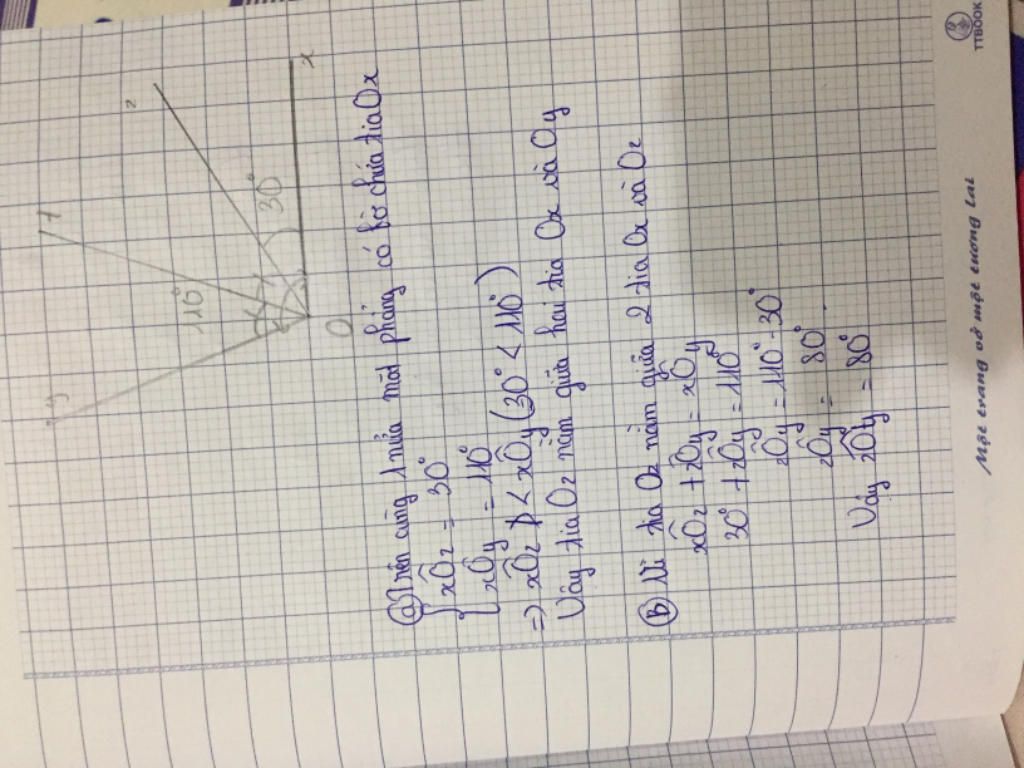 y
t
z
110°
30°
O
x
a) Trên cùng 1 nửa mặt phẳng có bờ chứa tia Ox
{ xÔz = 30°
xÔy = 110°
=> xÔz < xÔy (30° < 110°)
Vậy tia Oz nằm giữa hai tia Ox và Oy
b) Vì tia Oz nằm giữa 2 tia Ox và Oz
xÔz + zÔy = xÔy
30° + zÔy = 110°
zÔy = 110° - 30°
zÔy = 80°
Vậy zÔy = 80°
Một trang vở một tương lai
TTBOOK